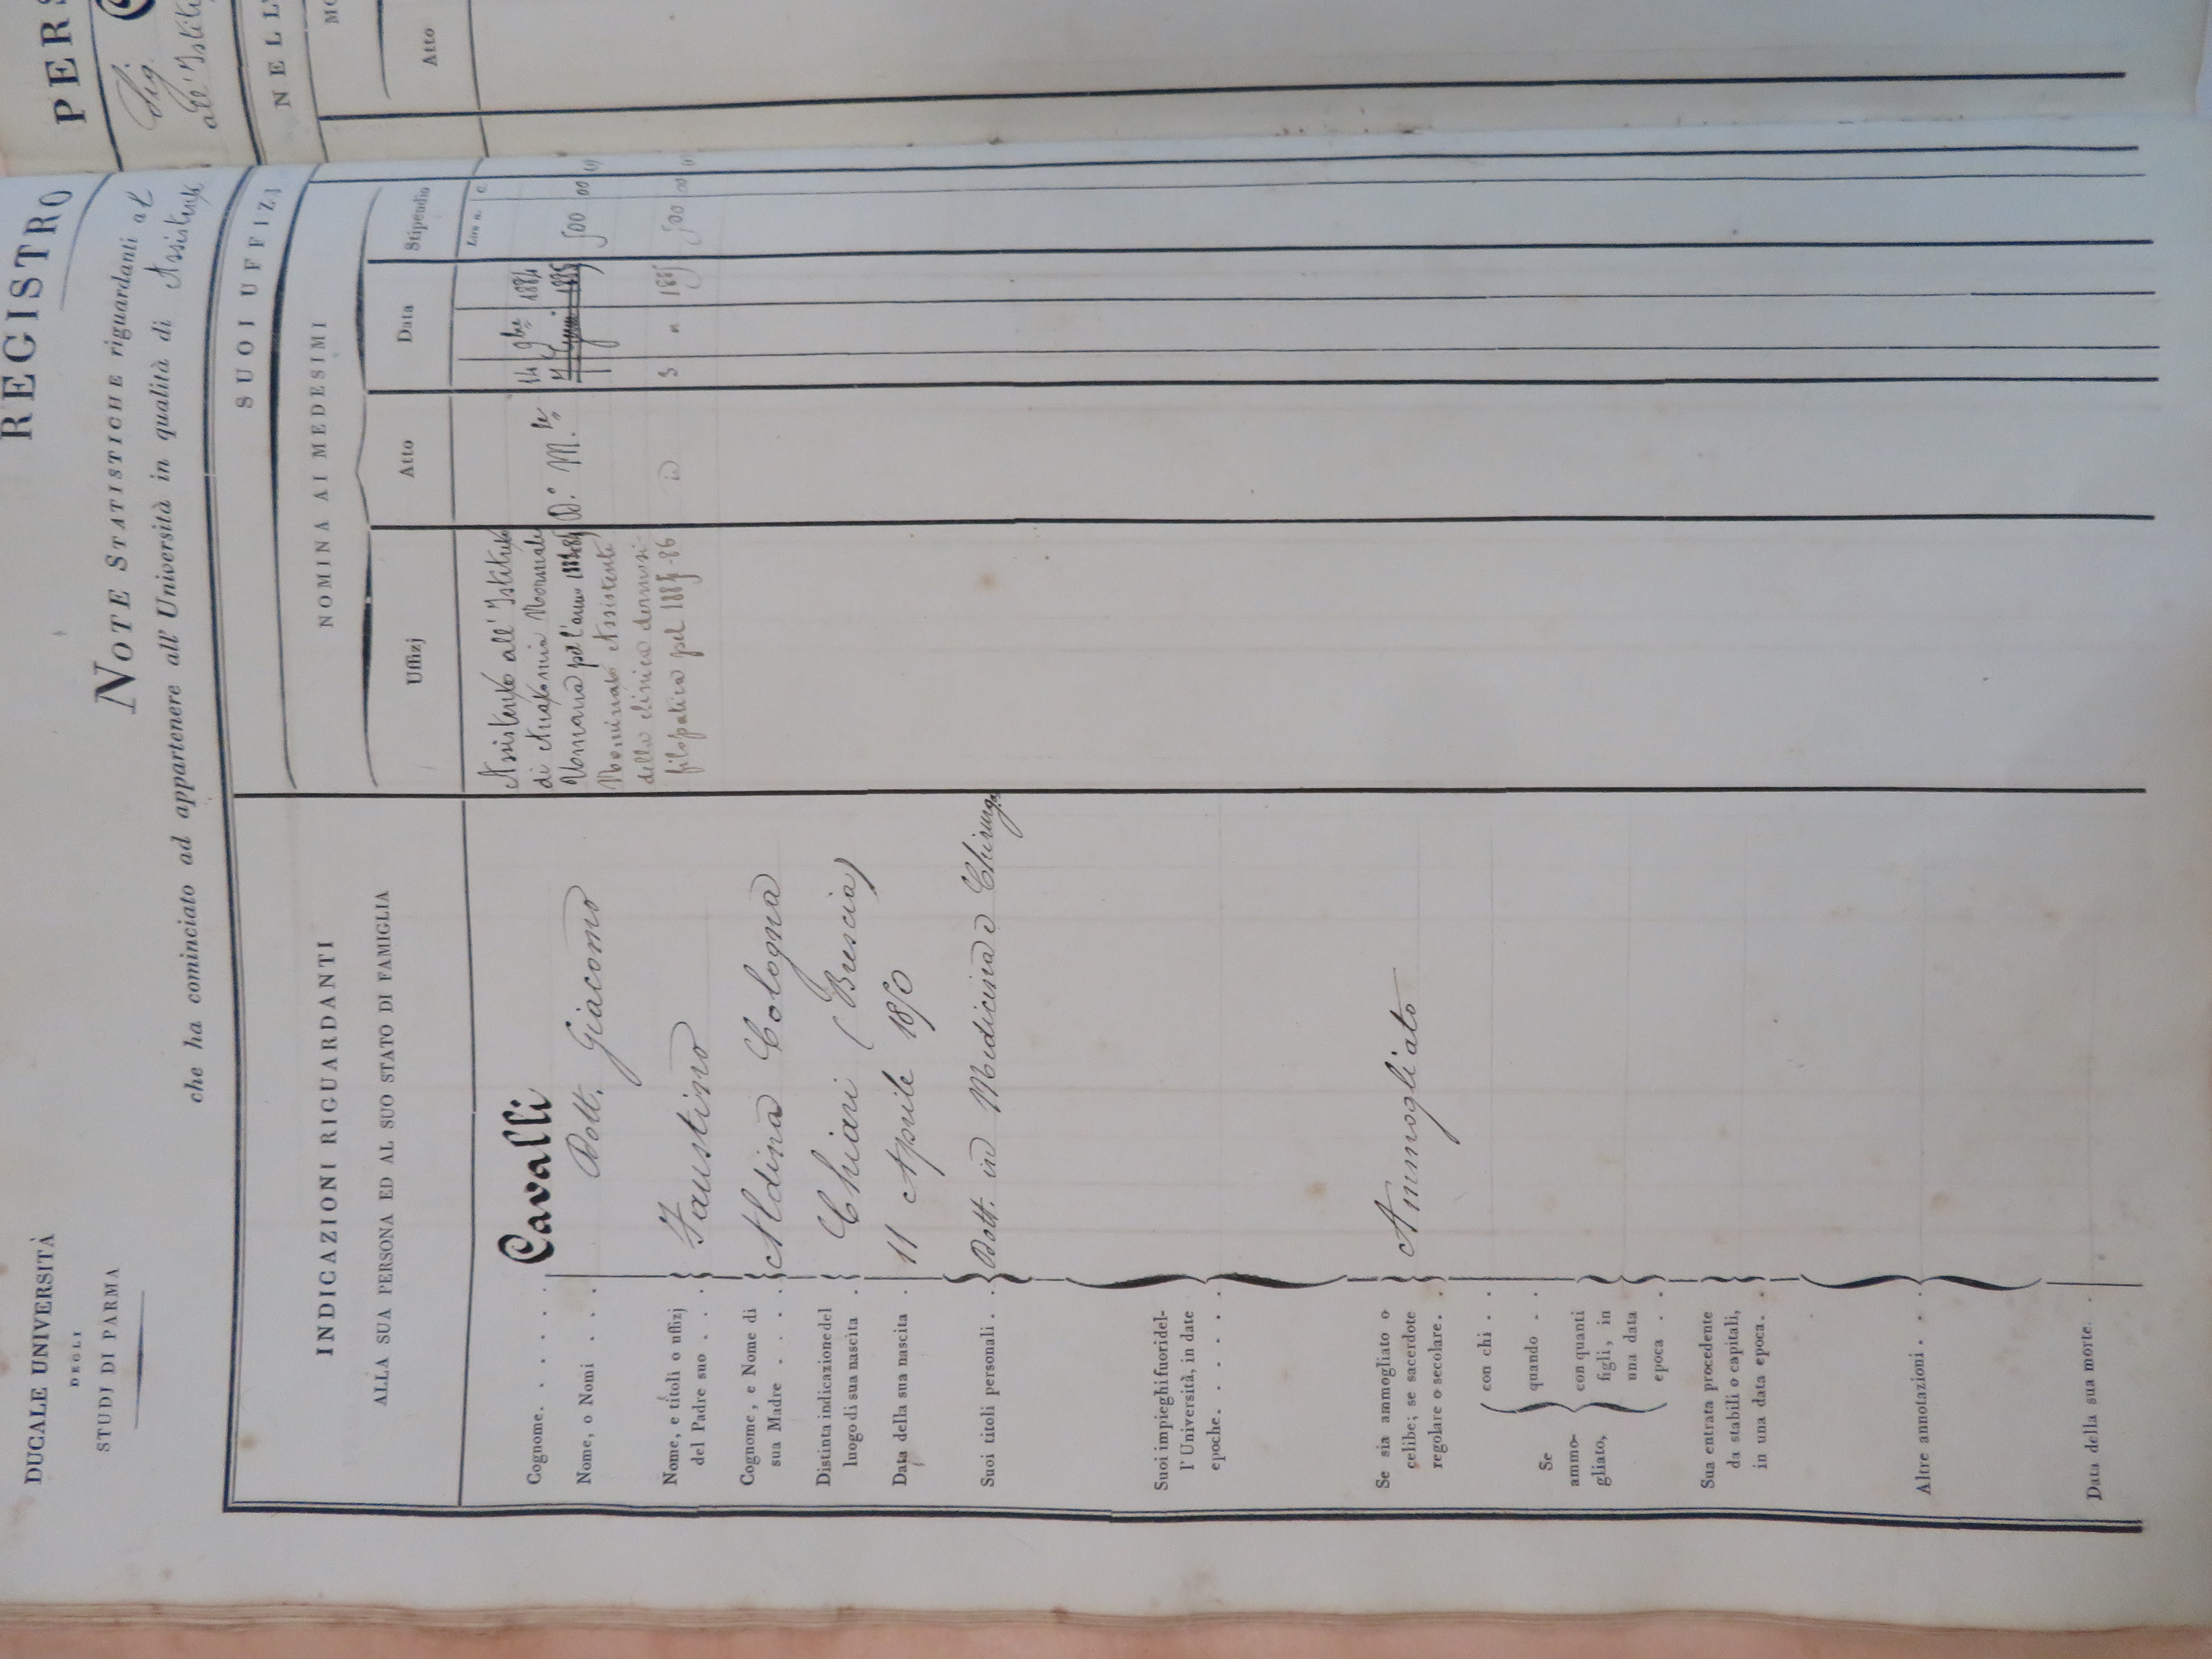 DUCALE UNIVERSITÀ
DEGLI
STUDJ DI PARMA
REGISTRO
NOTE STATISTICHE riguardanti al
che ha cominciato ad appartenere all' Università in qualità di Assistente
INDICAZIONI RIGUARDANTI
ALLA SUA PERSONA ED AL SUO STATO DI FAMIGLIA
Cognome. . . . . . Cavalli
Nome, o Nomi . . . . Dott. Giacomo
Nome, e titoli o uffizj
del Padre suo . . . Faustino
Cognome, e Nome di
sua Madre . . . . Aldina Cologna
Distinta indicazione del
luogo di sua nascita . Chiari (Brescia)
Data della sua nascita . 11 Aprile 1850
Suoi titoli personali . . Dott. in Medicina e Chirurgia
Suoi impieghi fuori del-
l' Università, in date
epoche. . . . . .
Se sia ammogliato o
celibe; se sacerdote
regolare o secolare. . Ammogliato
Se
ammo-
gliato,
con chi . .
quando . .
con quanti
figli, in
una data
epoca . .
Sua entrata procedente
da stabili o capitali,
in una data epoca. .
Altre annotazioni. . . .
Data della sua morte. .
SUOI UFFIZJ
NOMINA AI MEDESIMI
Uffizj
Atto
Data
Stipendio
Lire n.
c.
Assistente all' Istituto
di Anatomia Normale 14 9bre 1884
pel l'anno D.º M.le 500 00
Nominato Assistente
della clinica dermosi-
filopatica pel 1885-86 id 3 " 1885 500 00
PERS
Sig.
all' Istitu
NELL'
MO
Atto